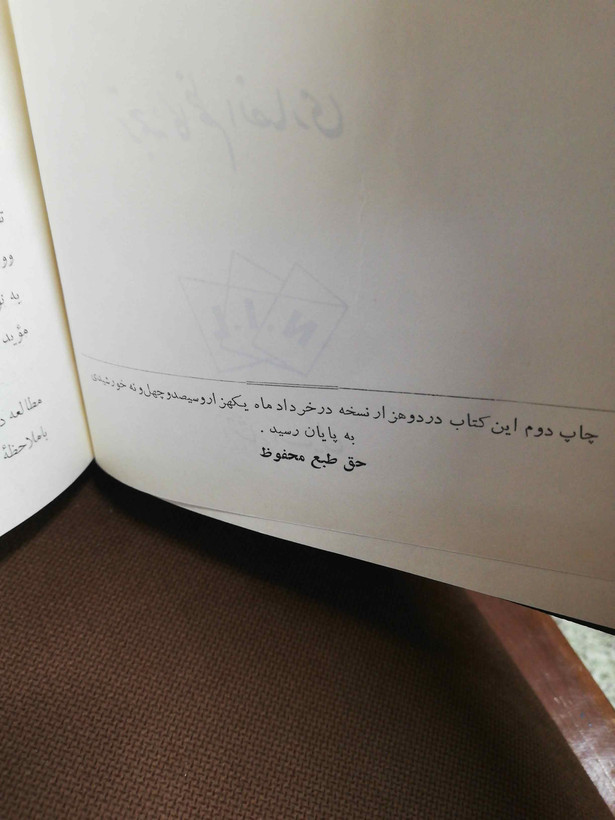 چاپ دوم این کتاب در دو هزار نسخه در خرداد ماه یکهزار و سیصد و چهل و نه خورشیدی
به پایان رسید .
حق طبع محفوظ
وو
به
مؤید
مطالعه
باملاحظهٔ
N.I.L